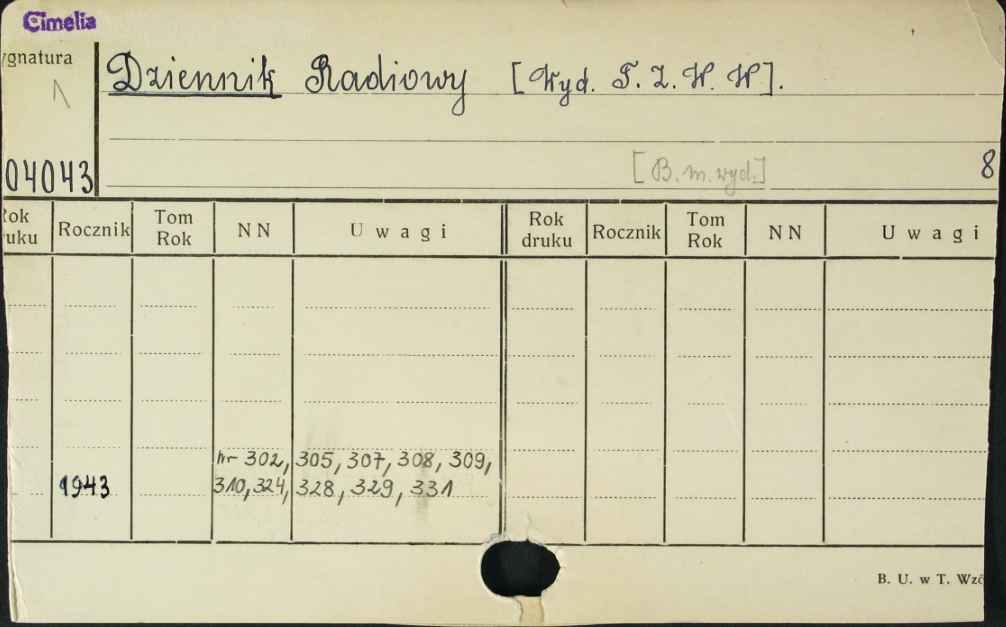 Cimelia
ygnatura
Dziennik Radiowy [Wyd. F. Z. W. W].
04043
[B. m. wyd.]
8
Rok druku Rocznik Tom Rok NN Uwagi Rok druku Rocznik Tom Rok NN Uwagi
nr 302, 305, 307, 308, 309,
1943 310, 324, 328, 329, 331
B. U. w T. Wzó